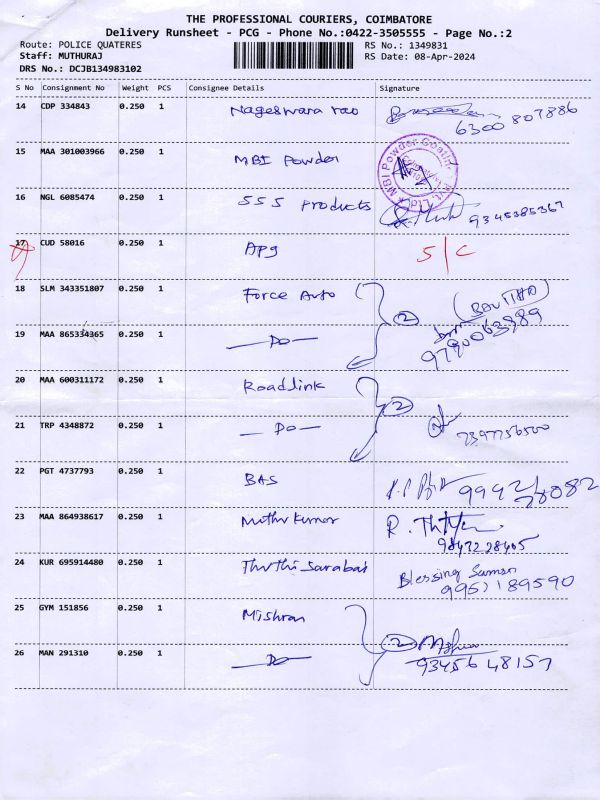 THE PROFESSIONAL COURIERS, COIMBATORE
Delivery Runsheet - PCG - Phone No.:0422-3505555 - Page No.:2
Route: POLICE QUATERES RS No.: 1349831
Staff: MUTHURAJ RS Date: 08-Apr-2024
DRS No.: DCJB134983102
S No Consignment No Weight PCS Consignee Details Signature
14 CDP 334843 0.250 1 Nageswara rao 6300 807886
15 MAA 301003966 0.250 1 MBI Powder MBI Powder Coatin
16 NGL 6085474 0.250 1 SSS Products 9345385367
17 CUD 58016 0.250 1 APG S/C
18 SLM 343351807 0.250 1 Force Auto 2
19 MAA 865334365 0.250 1 -Do-
20 MAA 600311172 0.250 1 Roadlink 2
21 TRP 4348872 0.250 1 -Do- 7397756500
22 PGT 4737793 0.250 1 BAS
23 MAA 864938617 0.250 1 Muthukumar R.
24 KUR 695914480 0.250 1 Blessing
9952189590
25 GYM 151856 0.250 1 Mishran 2
26 MAN 291310 0.250 1 -Do- 9345648157